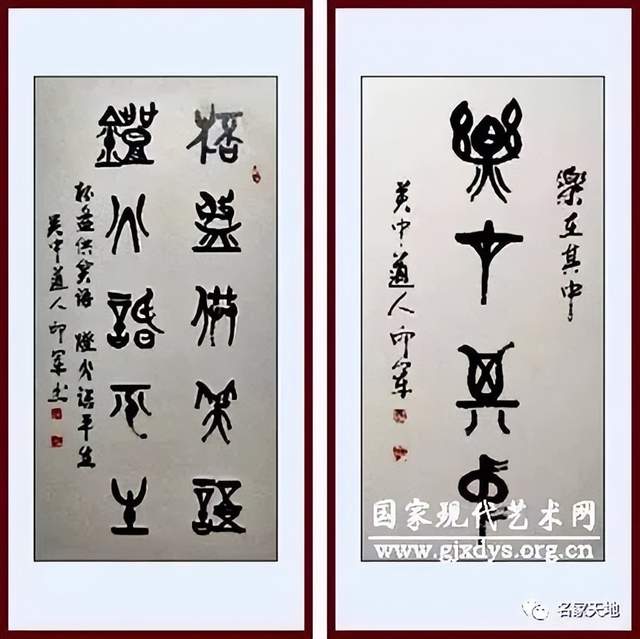 桮盤供笑語
鐙火話平生
杯盘供笑语 燈火話平生
吴中道人印軍书
樂在其中
樂在其中
吴中道人印軍
国家现代艺术网
www.gjxdys.org.cn
名家天地